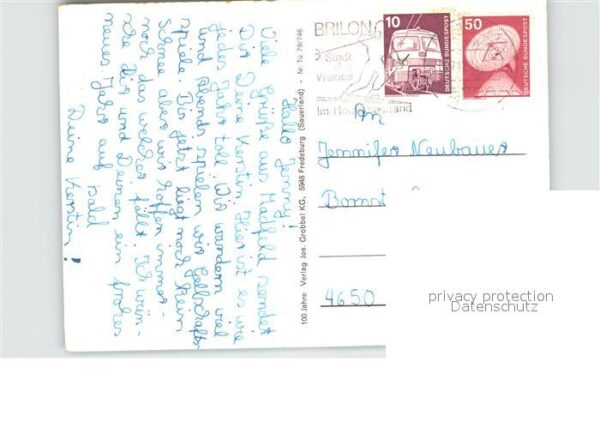 Hallo Jenny!
Viele Grüße aus Madfeld sendet
Dir Deine Kerstin. Hier ist es wie
jedes Jahr toll. Wir wandern viel
und Abends spielen wir Gellschafts-
spiele. Bis jetzt liegt noch kein
Schnee aber wir hoffen immer
noch das welcher fällt. Ich wün-
sche Dir und Deinem ein frohes
neues Jahr auf bald
Deine Kerstin!
100 Jahre Verlag Jos. Grobbel KG, 5948 Fredeburg (Sauerland) - Nr. Ta 79/746
BRILON
Stadt
Waldes
Im Ho
land
10
DEUTSCHE BUNDESPOST
50
DEUTSCHE BUNDESPOST
An
Jennifer Neubauer
4650
privacy protection
Datenschutz